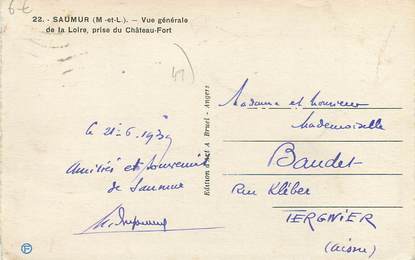 6-€
22. - SAUMUR (M-et-L). — Vue générale
de la Loire, prise du Château-Fort
le 21-6-1939
Amitiés et souvenir
de Saumur
Edition d'Art A. Bruel - Angers
Madame et Monsieur
Mademoiselle
Baudet
Rue Kléber
TERGNIER
(Aisne)